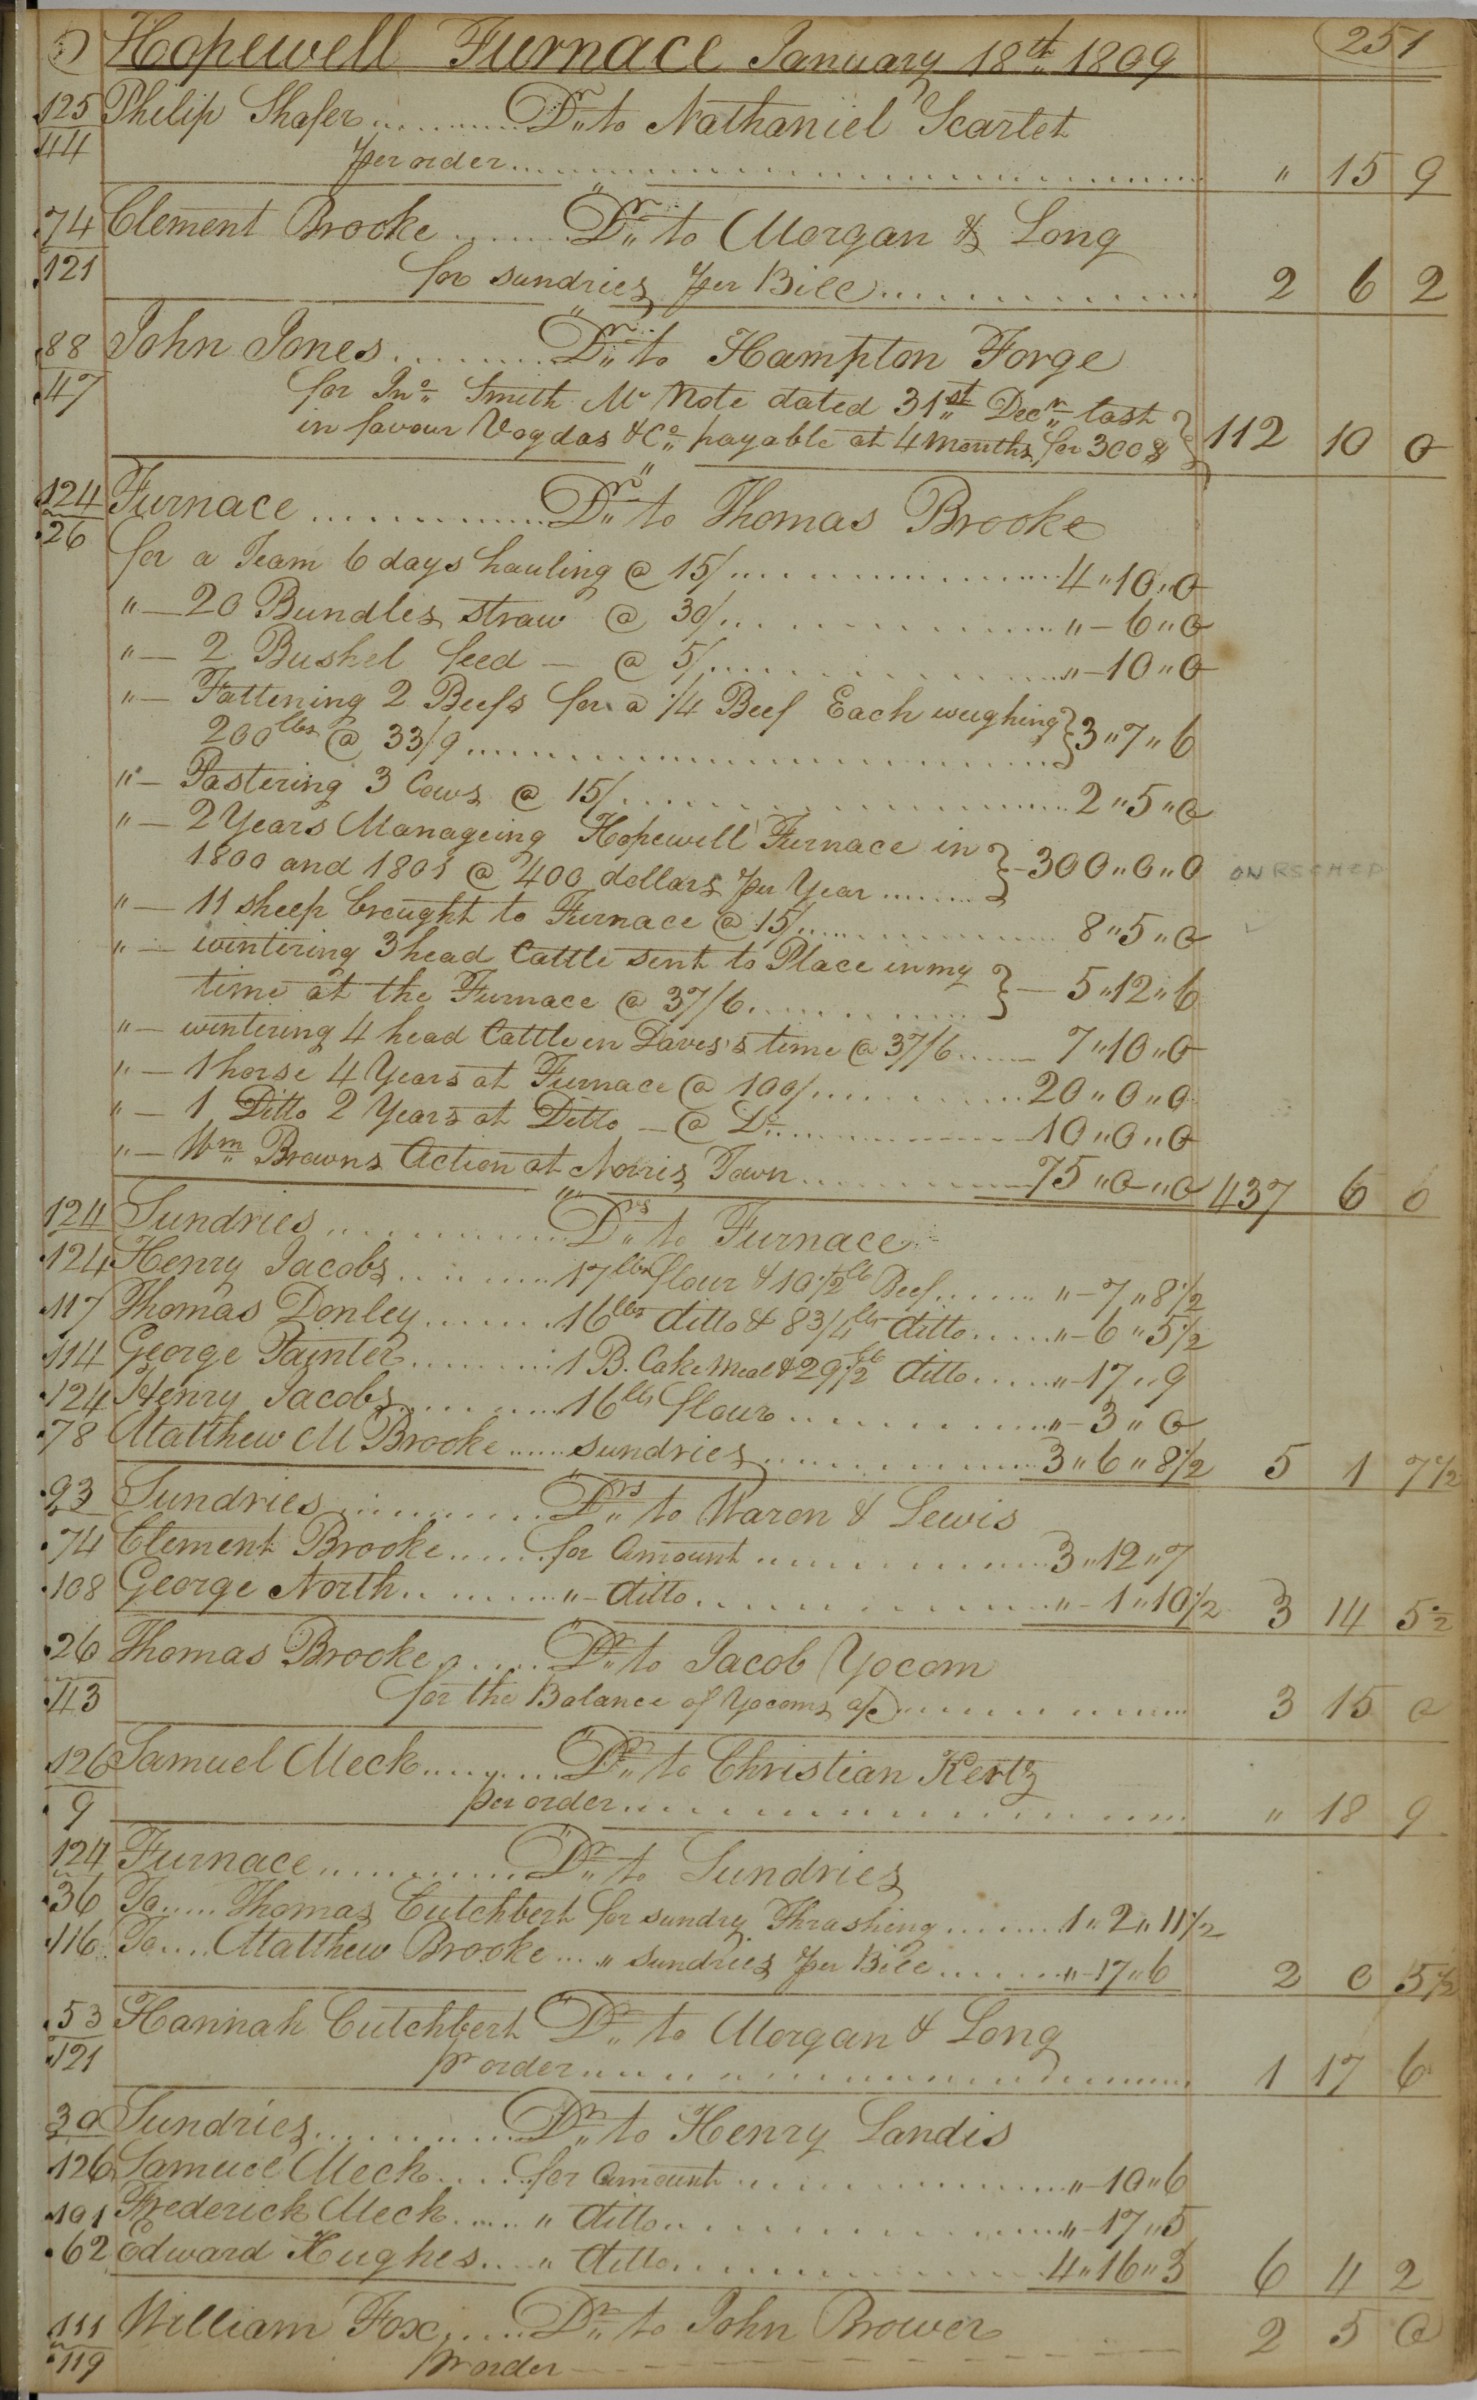 5) Hopewell Furnace January 18th 1809 251
125 Philip Shafer .......... Dr to Nathaniel Scarlet
44 per order .......... " 15 9
74 Clement Brooke .......... Dr to Morgan & Long
121 for sundries per Bill .......... 2 6 2
88 John Jones .......... Dr to Hampton Forge
47 for Jno Smith Mr Note dated 31st Decr last
in favour Vogdas & Co payable at 4 months for 300$ } 112 10 0
124 Furnace .......... Dr to Thomas Brooke
26 for a Team 6 days hauling @ 15/ .......... 4"10"0
" — 20 Bundles straw @ 30/ .......... " — 6"0
" — 2 Bushel seed — @ 5/ .......... " — 10"0
" — Fattening 2 Beefs for a 1/4 Beef Each weighing
200 lbs @ 33/9 .......... } 3"7"6
" — Pastering 3 Cows @ 15/ .......... 2"5"0
" — 2 Years Manageing Hopewell Furnace in
1800 and 1801 @ 400 dollars per Year .......... } — 300"0"0
" — 11 sheep brought to Furnace @ 15/ .......... 8"5"0
" — wintering 3 head Cattle sent to Place in my
time at the Furnace @ 37/6 .......... } — 5"12"6
" — wintering 4 head Cattle in Daves's time @ 37/6 .......... 7"10"0
" — 1 horse 4 Years at Furnace @ 100/ .......... 20"0"0
" — 1 Ditto 2 Years at Ditto — @ Do .......... 10"0"0
" — Wm Browns Action at Norris Town .......... 75"0"0 437 6 0
124 Sundries .......... Drs to Furnace
124 Henry Jacobs .......... 17 lbs flour & 10 1/2 lb Beef .......... " — 7"8 1/2
117 Thomas Donley .......... 16 lbs ditto & 8 3/4 lbs ditto .......... " — 6"5 1/2
114 George Painter .......... 1 B. Cake Meal & 29 1/2 lb ditto .......... " — 17"9
124 Henry Jacobs .......... 16 lbs flour .......... " — 3"0
78 Matthew M Brooke .......... sundries .......... 3"6"8 1/2 5 1 7 1/2
93 Sundries .......... Drs to Waron & Lewis
74 Clement Brooke .......... for Amount .......... 3"12"7
108 George North .......... " — ditto .......... " — 1"10 1/2 3 14 5 1/2
26 Thomas Brooke .......... Dr to Jacob Yocom
43 for the Balance of Yocoms a/c .......... 3 15 0
126 Samuel Meck .......... Dr to Christian Kertz
9 per order .......... " 18 9
124 Furnace .......... Dr to Sundries
36 To .... Thomas Cutchbert for sundry Thrashing .......... 1"2"11 1/2
116 To .... Matthew Brooke ... " sundries per Bill .......... " — 17"6 2 0 5 1/2
53 Hannah Cutchbert Dr to Morgan & Long
121 pr order .......... 1 17 6
30 Sundries .......... Drs to Henry Landis
126 Samuel Meck .......... for Amount .......... " — 10"6
101 Frederick Meck .......... " ditto .......... " — 17"5
62 Edward Hughes .......... " ditto .......... 4"16"3 6 4 2
111 William Fox .......... Dr to John Brower 2 5 0
119 pr order